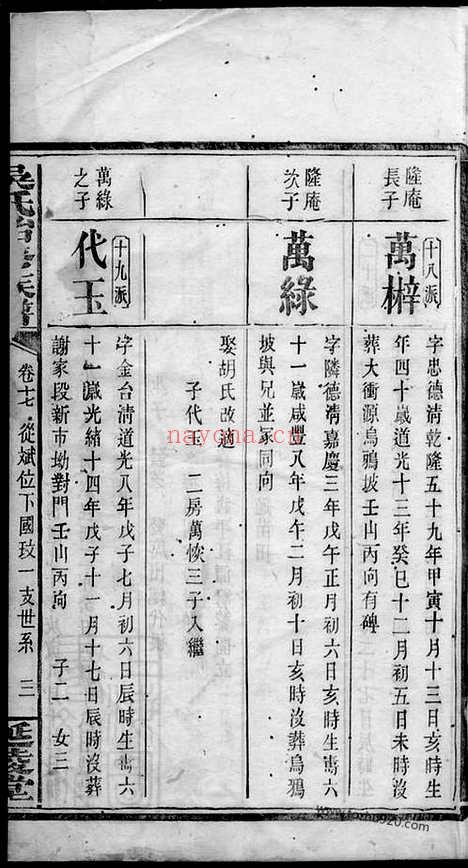 十八派
隆庵
長子
萬櫸
字忠德清乾隆五十九年甲寅十月十三日亥時生
年四十歲道光十三年癸巳十二月初五日未時沒
葬大衝源烏鴉坡壬山丙向有碑
隆庵
次子
萬綠
字隣德清嘉慶三年戊午正月初六日亥時生壽六
十一歲咸豐八年戊午二月初十日亥時沒葬烏鴉
坡與兄並冢同向
娶胡氏改適
子代玉　二房萬恢三子入繼
十九派
萬綠
之子
代玉
字金台清道光八年戊子七月初六日辰時生壽六
十一歲光緒十四年戊子十一月十七日辰時沒葬
謝家段新市坳對門壬山丙向　子二　女三
吳氏 族譜
卷十七　從斌位下國玟一支世系　三
延陵堂
nayona.cn